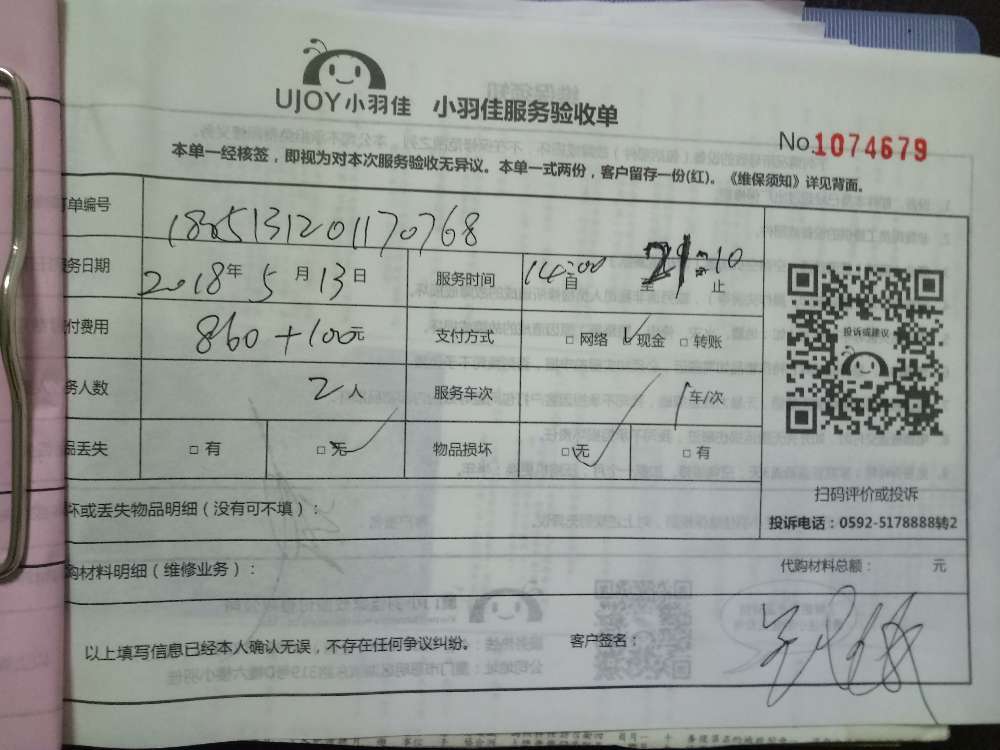 UJOY小羽佳 小羽佳服务验收单
No.1074679
本单一经核签，即视为对本次服务验收无异议。本单一式两份，客户留存一份(红)。《维保须知》详见背面。
订单编号 1805131201170768
务日期 2018年5月13日 服务时间 14:00 自 至 21:10 止
付费用 860+100元 支付方式 □网络 现金 □转账
务人数 2人 服务车次 1车/次
丢失 □有 □无 物品损坏 □无 □有
投诉或建议
扫码评价或投诉
投诉电话：0592-5178888转2
坏或丢失物品明细（没有可不填）：
购材料明细（维修业务）： 代购材料总额： 元
以上填写信息已经本人确认无误，不存在任何争议纠纷。 客户签名：